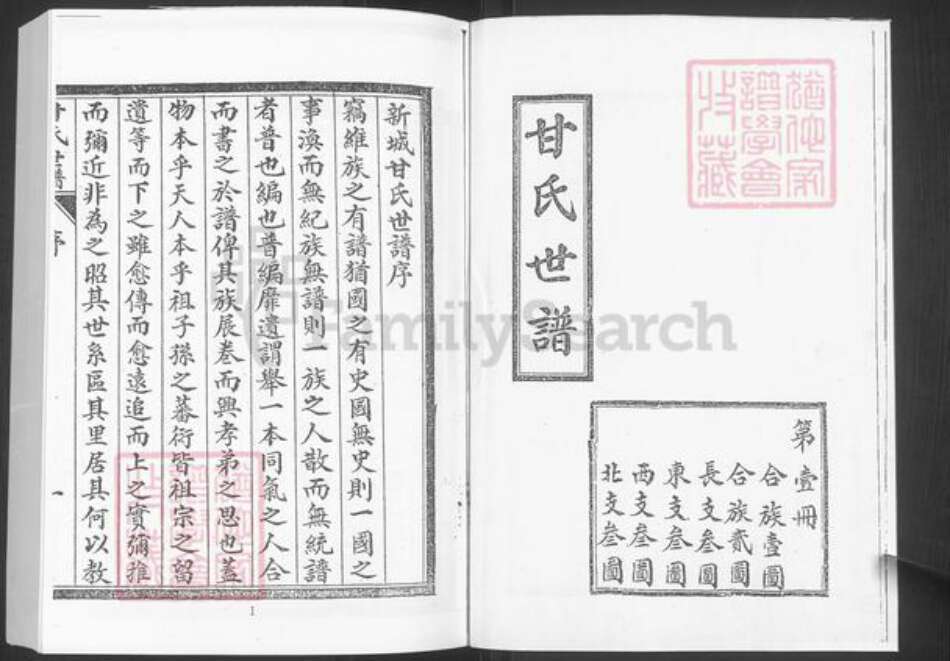 甘氏世譜
第壹冊
合族壹圖
合族貳圖
長支叁圖
東支叁圖
西支叁圖
北支叁圖
譜學會
收藏
新城甘氏世譜序
竊維族之有譜猶國之有史國無史則一國之
事渙而無紀族無譜則一族之人散而無統譜
者普也編也普編靡遺謂舉一本同氣之人合
而書之於譜俾其族展卷而興孝弟之思也蓋
物本乎天人本乎祖子孫之蕃衍皆祖宗之留
遺等而下之雖愈傳而愈遠追而上之實彌推
而彌近非為之昭其世系區其里居其何以教
甘氏世譜
序
一
1
FamilySearch